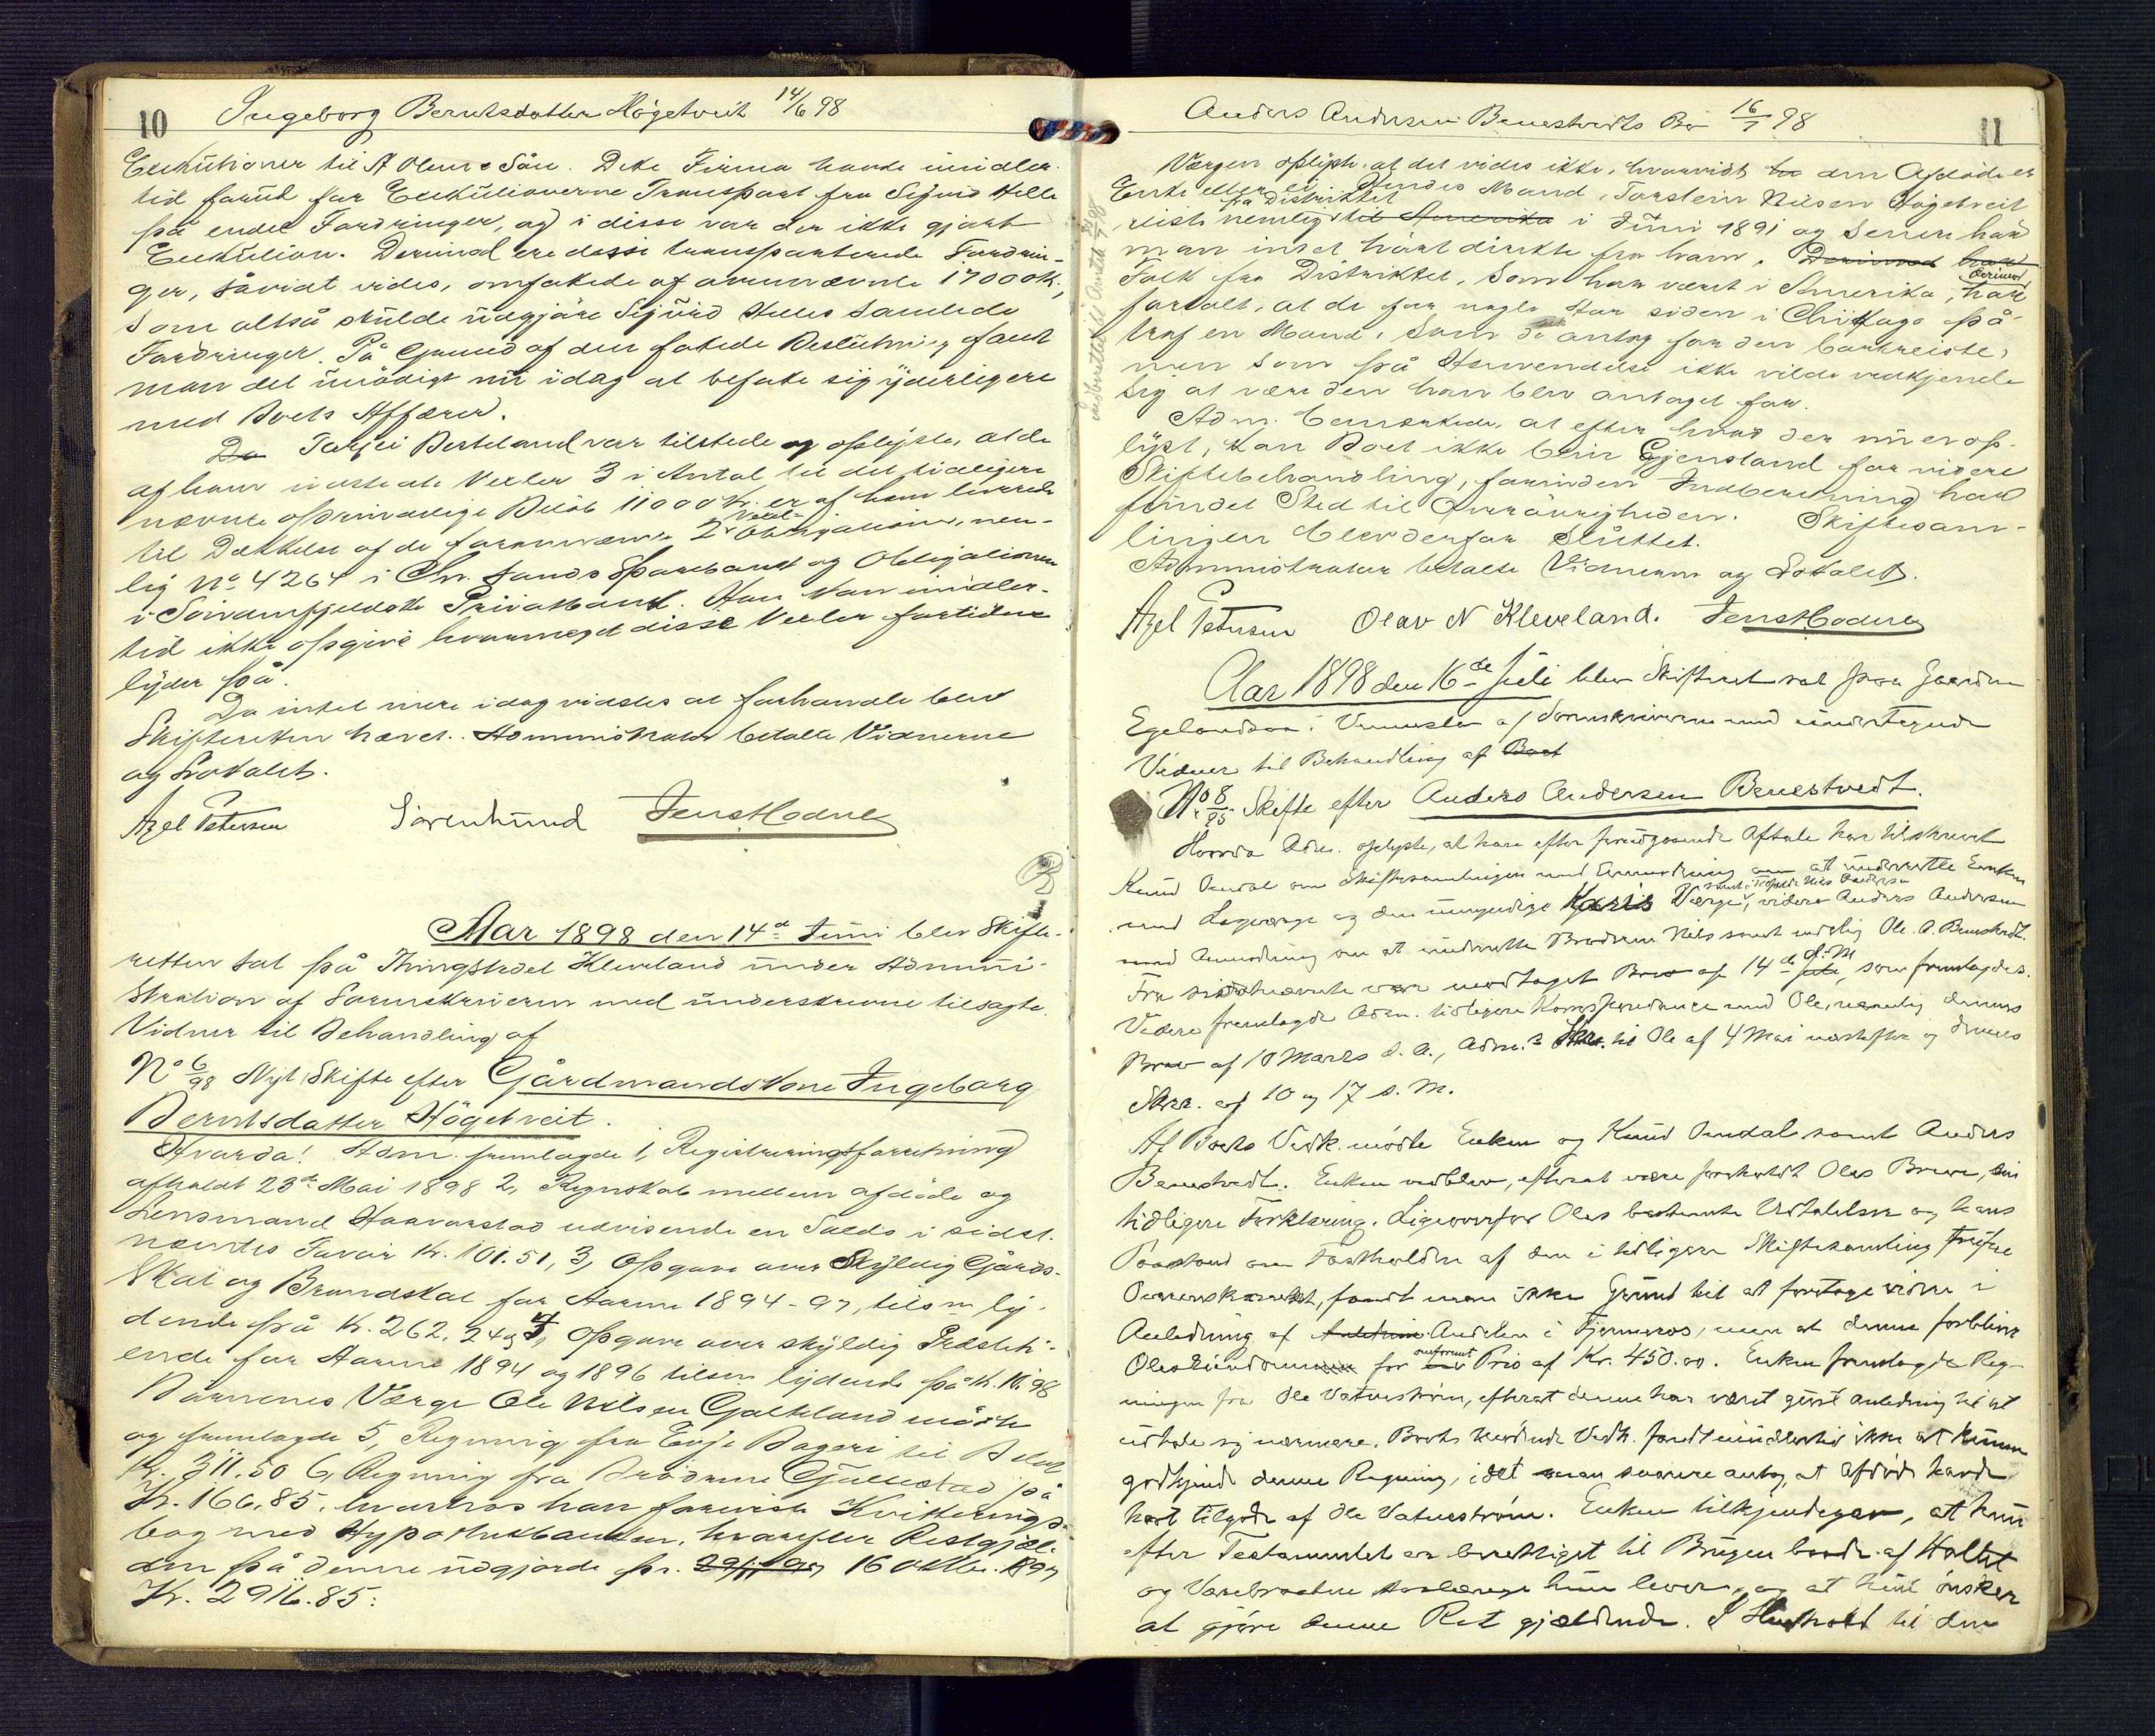 10 Ingeborg Berntsdatter Högetveit 14/6 98
Exekutioner til A Olsen & Sön. Dette Firma havde imidler-
tid forud for Exekutionerne Transport fra Sigurd Hille
på endel Fordringer, og i disse var der ikke gjort
Exekution. Derimod ere disse transporterede Fordrin-
ger, såvidt vides, omfattede af ovennævnte 17000 Kr,
som altså skulde udgjöre Sigurd Hilles samlede
Fordringer. På Grund af den fattede Beslutning fandt
man det unödigt nu idag at befatte sig yderligere
med Boets Affærer.
Da Tarjei Besteland var tilstede og oplyste, at de
af ham udstedte Vexler 3 i Antal til det tidligere
nævnte oprindelige Belöb 11000 Kr. er af ham leverede
til Dækkelse af de forannævnte 2 Vexel-Obligationer, nem-
lig No. 4264 i Chr. sands Sparebank og Obligationen
i Søndenfjeldske Privatbank. Han kan imidler-
tid ikke opgive hvormeget disse Vexler fortiden
lyder på.
Da intet mere idag vidstes at forhandle blev
Skifteretten hævet. Administrator betalte Vidnerne
og Lokalet.
Axel Petersen Sören Lund Jens Hodne
Aar 1898 den 14de Juni blev Skifte-
retten sat på Thingstedet Kleveland under Admini-
stration af Sorenskriveren med underskrevne tilsagte
Vidner til Behandling af
No 6/98 Nyt Skifte efter Gårdmandskone Ingeborg
Berntsdatter Högetveit.
Hvorda! Adm. fremlagde 1, Registreringsforretning
afholdt 23de Mai 1898 2, Regnskab mellem afdöde og
Lensmand Haavorstad udvisende en Saldo i sidst-
nævntes Favör Kr. 101.51, 3, Opgave over Skyldig Gårds-
Skat og Brandskat for Aarene 1894-97, tilsm. ly-
dende på Kr. 262.24 og 4, Opgave over skyldig Prästeti-
ende for Aarene 1894 og 1896 tilsm. lydende på Kr. 10.98
Barnenes Værge Ole Nilsen Galteland mödte
og fremlagde 5, Regning fra Evje Bageri til Belöb
Kr. 311.50 6, Regning fra Brödrene Gullestad på
Kr. 166.85, hvorhos han foreviste Kvitterings-
bog med Hypothekbanken, hvorefter Restgjæl-
den på denne udgjorde pr. 29/11 97 16 Oktbr. 1897
Kr. 2916.85:
Anders Andersen Benestvedts Bo 16/7 98 11
Værgen oplyste, at det vides ikke, hvorvidt den Afdöde er
Enke eller ei. Hendes Mand, Torstein Nilsen Högetveit
reiste nemlig fra Distriktet til Amerika i Juni 1891 og senere har
man intet hört direkte fra ham. Derimod har
Folk fra Distriktet, som har været i Amerika, derimod har
fortalt, at de for nogle Aar siden i Chikago på-
traf en Mand, som de antog for den bortreiste,
men som på Henvendelse ikke vilde vedkjende
sig at være den han blev antaget for.
Adm. bemerkede, at efter hvad der nu er op-
lyst, kan Boet ikke blive Gjenstand for videre
Skiftebehandling, forinden Indberetning har
fundet Sted til Overövrigheden. Skiftesam-
lingen blev derfor sluttet.
Administrator betalte Vidnerne og Lokalet.
Axel Petersen Olav N Kleveland. Jens Hodne
Aar 1898 den 16de Juli blev Skifteret sat paa Gaarden
Egelandsaa i Vennesla af Sorenskriveren med undertegnede
Vidner til Behandling af Boet
No 8/95. Skifte efter Anders Andersen Benestvedt.
Hvorda Adm. oplyste, at han efter foregaaende Aftale har tilskrevet
Knud Omdal om Skiftesamlingen med Anmodning om at underrette Enken
med Lagværge og den umyndige Karis Værge, samt videre Anders Andersen
med Anmodning om at underrette Broderen Nils samt endelig Ole A. Benestvedt.
Fra sidstnævnte var modtaget Brev af 14de d. M, som fremlagdes.
Videre fremlagde Adm. tidligere Korrespondance med Ole, nemlig dennes
Brev af 10 Marts d. A., Adm.s Skr. til Ole af 4 Mai næstefter og dennes
Skrr. af 10 og 17 s. M.
Af Boets Vedk. mödte Enken og Knud Omdal samt Anders
Benestvedt. Enken vedblev, efterat være foreholdt Oles Breve, sin
tidligere Forklaring. Ligeoverfor Oles bestemte Udtalelser og hans
Paastand om Fastholden af den i tidligere Skiftesamling trufne
Overenskomst, fandt man ikke Grund til at foretage videre i
Anledning af Andelen i Tjernmos, men at denne forbliver
Oles Eiendom for omforenet Pris af Kr. 450.00. Enken fremlagde Reg-
ningen fra Ole Vatneström, efterat denne har været givet Anledning til at
udtale sig nærmere. Boets mödende Vedk. fandt imidlertid ikke at kunne
godkjende denne Regning, idet man snarere antog, at Afdöde havde
havt tilgode af Ole Vatneström. Enken tilkjendegav, at hun
efter Testamentet er berettiget til Brugen baade af Holtet
og Vasebraatene saalænge hun lever, og at hun önsker
at gjöre denne Ret gjældende. I Henhold til den